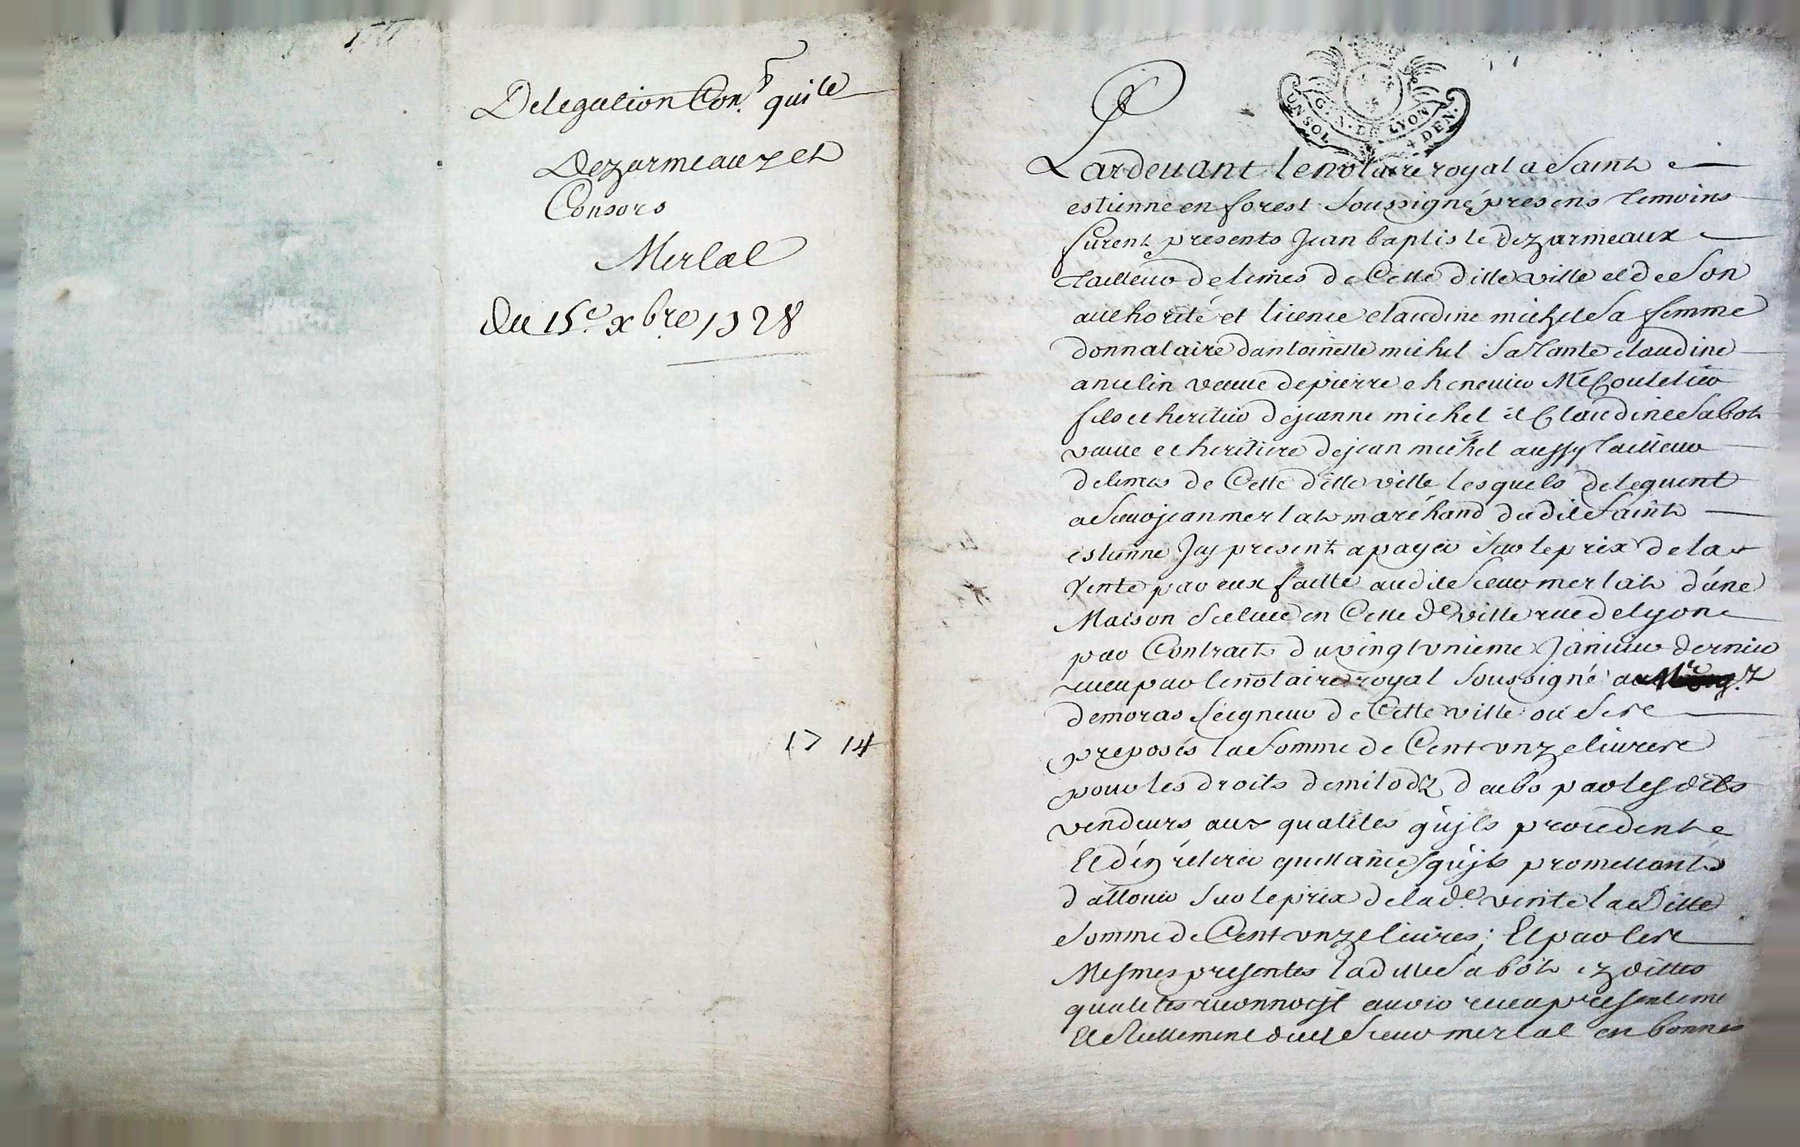 Delegation Con.
quite
Dezarmeaux et
Consors
Merlat
Du 15e. xbre 1728
17 14
G. N. DE LYON
UN SOL DEN.
Pardevant le notaire royal a Saint
estienne en forest Soussigné, presens temoins
furent presents Jean baptiste dezarmeaux
tailleur de limes de Cette ditte ville et de Son
authorité et licence claudine michel Sa femme
donnataire dantoinette michel Sa tante claudine
veuve de pierre
fils et heritier de jeanne michel et Claudine Sabot
veuve et heritiere de jean michel aussy tailleur
de limes de Cette ditte ville lesquels deleguent
a Sieur jean merlat marchand dudit Saint
estienne Jcy present a payer Sur le prix de la
vente par eux faitte audit Sieur merlat d'une
Maison Scituée en Cette de ville rue de lyon
par Contract du vingt unieme Janvier dernier
receu par le notaire royal Soussigné a
demoras Seigneur de Cette ville ou Ses
preposés la Somme de Cent unze livres
pour les droits de milodz deubs par lesdits
vendeurs aux qualités qu'jls procedent
Et d'en retirer quittance, qu'jls promettent
d'allouer Sur le prix de lade. vente la Ditte
Somme de Cent unze livres; Et par les
Mesmes presentes laditte Sabot ez dittes
qualités reconnoist avoir receu presentement
Et reellement dudit Sieur merlat en bonnes